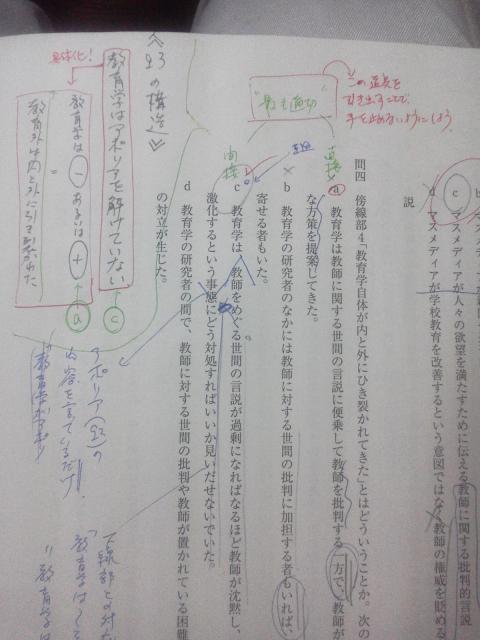 c マスメディアが人々の欲望を満たすために伝える教師に関する批判的言説
d マスメディアが学校教育を改善するという意図ではなく教師の権威を貶める
説
問四 傍線部4「教育学自体が内と外にひき裂かれてきた」とはどういうことか。次の
a 教育学は教師に関する世間の言説に便乗して教師を批判する一方で、教師が
な方策を提案してきた。
b 教育学の研究者のなかには教師に対する世間の批判に加担する者もいれば、
寄せる者もいた。
c 教育学は、教師をめぐる世間の言説が過剰になればなるほど教師が沈黙し、
激化するという事態にどう対処すればいいか見いだせないでいた。
d 教育学の研究者の間で、教師に対する世間の批判や教師が置かれている困難
の対立が生じた。
"最も適切"
この延長を
引き出すことで、
手を止めないようにしよう
直接
間接
《の構造》
具体化！
教育学はアポリアを解けていない
教育学は − あるいは +
=
教育学は内と外に引き裂かれた
c
a
アポリア
内容を言ているだけ